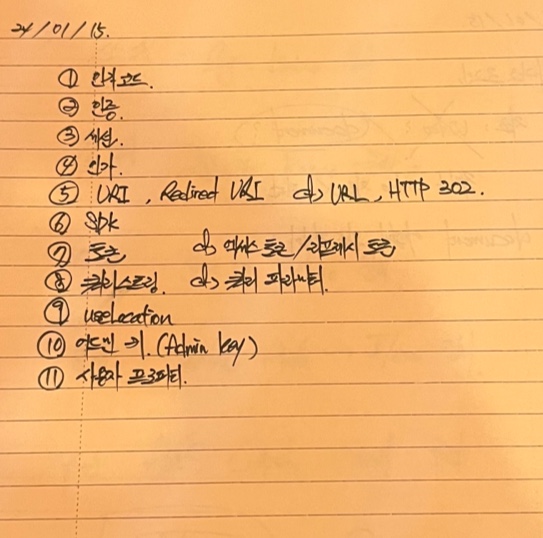 24/01/15.
① 인가코드.
② 인증.
③ 세션.
④ 인가.
⑤ URI, Redirect URI cf) URL, HTTP 302.
⑥ SDK
⑦ 토큰 cf) 액세스 토큰/리프레시 토큰
⑧ 쿼리스트링. cf) 쿼리 파라미터.
⑨ useLocation
⑩ 어드민 키. (Admin key)
⑪ 사용자 프로퍼티.